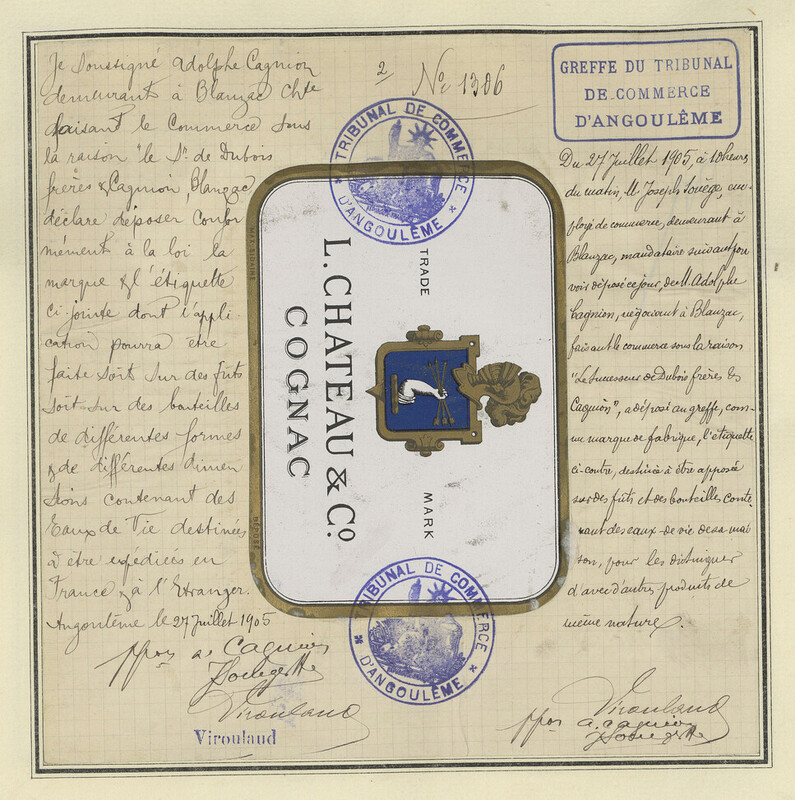 Je soussigné Adolphe Cagnion
demeurant à Blanzac Chte
faisant le Commerce sous
la raison "le Sr de Dubois
frères & Cagnion, Blanzac
déclare déposer confor
mément à la loi la
marque & l'étiquette
ci-jointe dont l'appli
cation pourra être
faite soit sur des fûts
soit sur des bouteilles
de différentes formes
& de différentes dimen
sions contenant des
Eaux de Vie destinées
à être expédiées en
France & à l'Etranger.
Angoulême le 27 Juillet 1905
ppon A. Cagnion
Virouland
Virouland
2 No 1306
TRIBUNAL DE COMMERCE
D'ANGOULÊME
TRADE MARK
L. CHATEAU & Co
COGNAC
DÉPOSÉ
TRIBUNAL DE COMMERCE
D'ANGOULÊME
GREFFE DU TRIBUNAL
DE COMMERCE
D'ANGOULÊME
Du 27 Juillet 1905, à 10 heures
du matin, M. Joseph Souège, em-
ployé de commerce, demeurant à
Blanzac, mandataire suivant pou
voir déposé ce jour, de M. Adolphe
Cagnion, négociant à Blanzac,
faisant le commerce sous la raison
"Le Successeur de Dubois frères &
Cagnion", a déposé au greffe, com-
me marque de fabrique, l'étiquette
ci-contre, destinée à être apposée
sur des fûts et des bouteilles conte
nant des eaux de vie de sa mai
son, pour les distinguer
d'avec d'autres produits de
même nature.
Virouland
ppon A. Cagnion